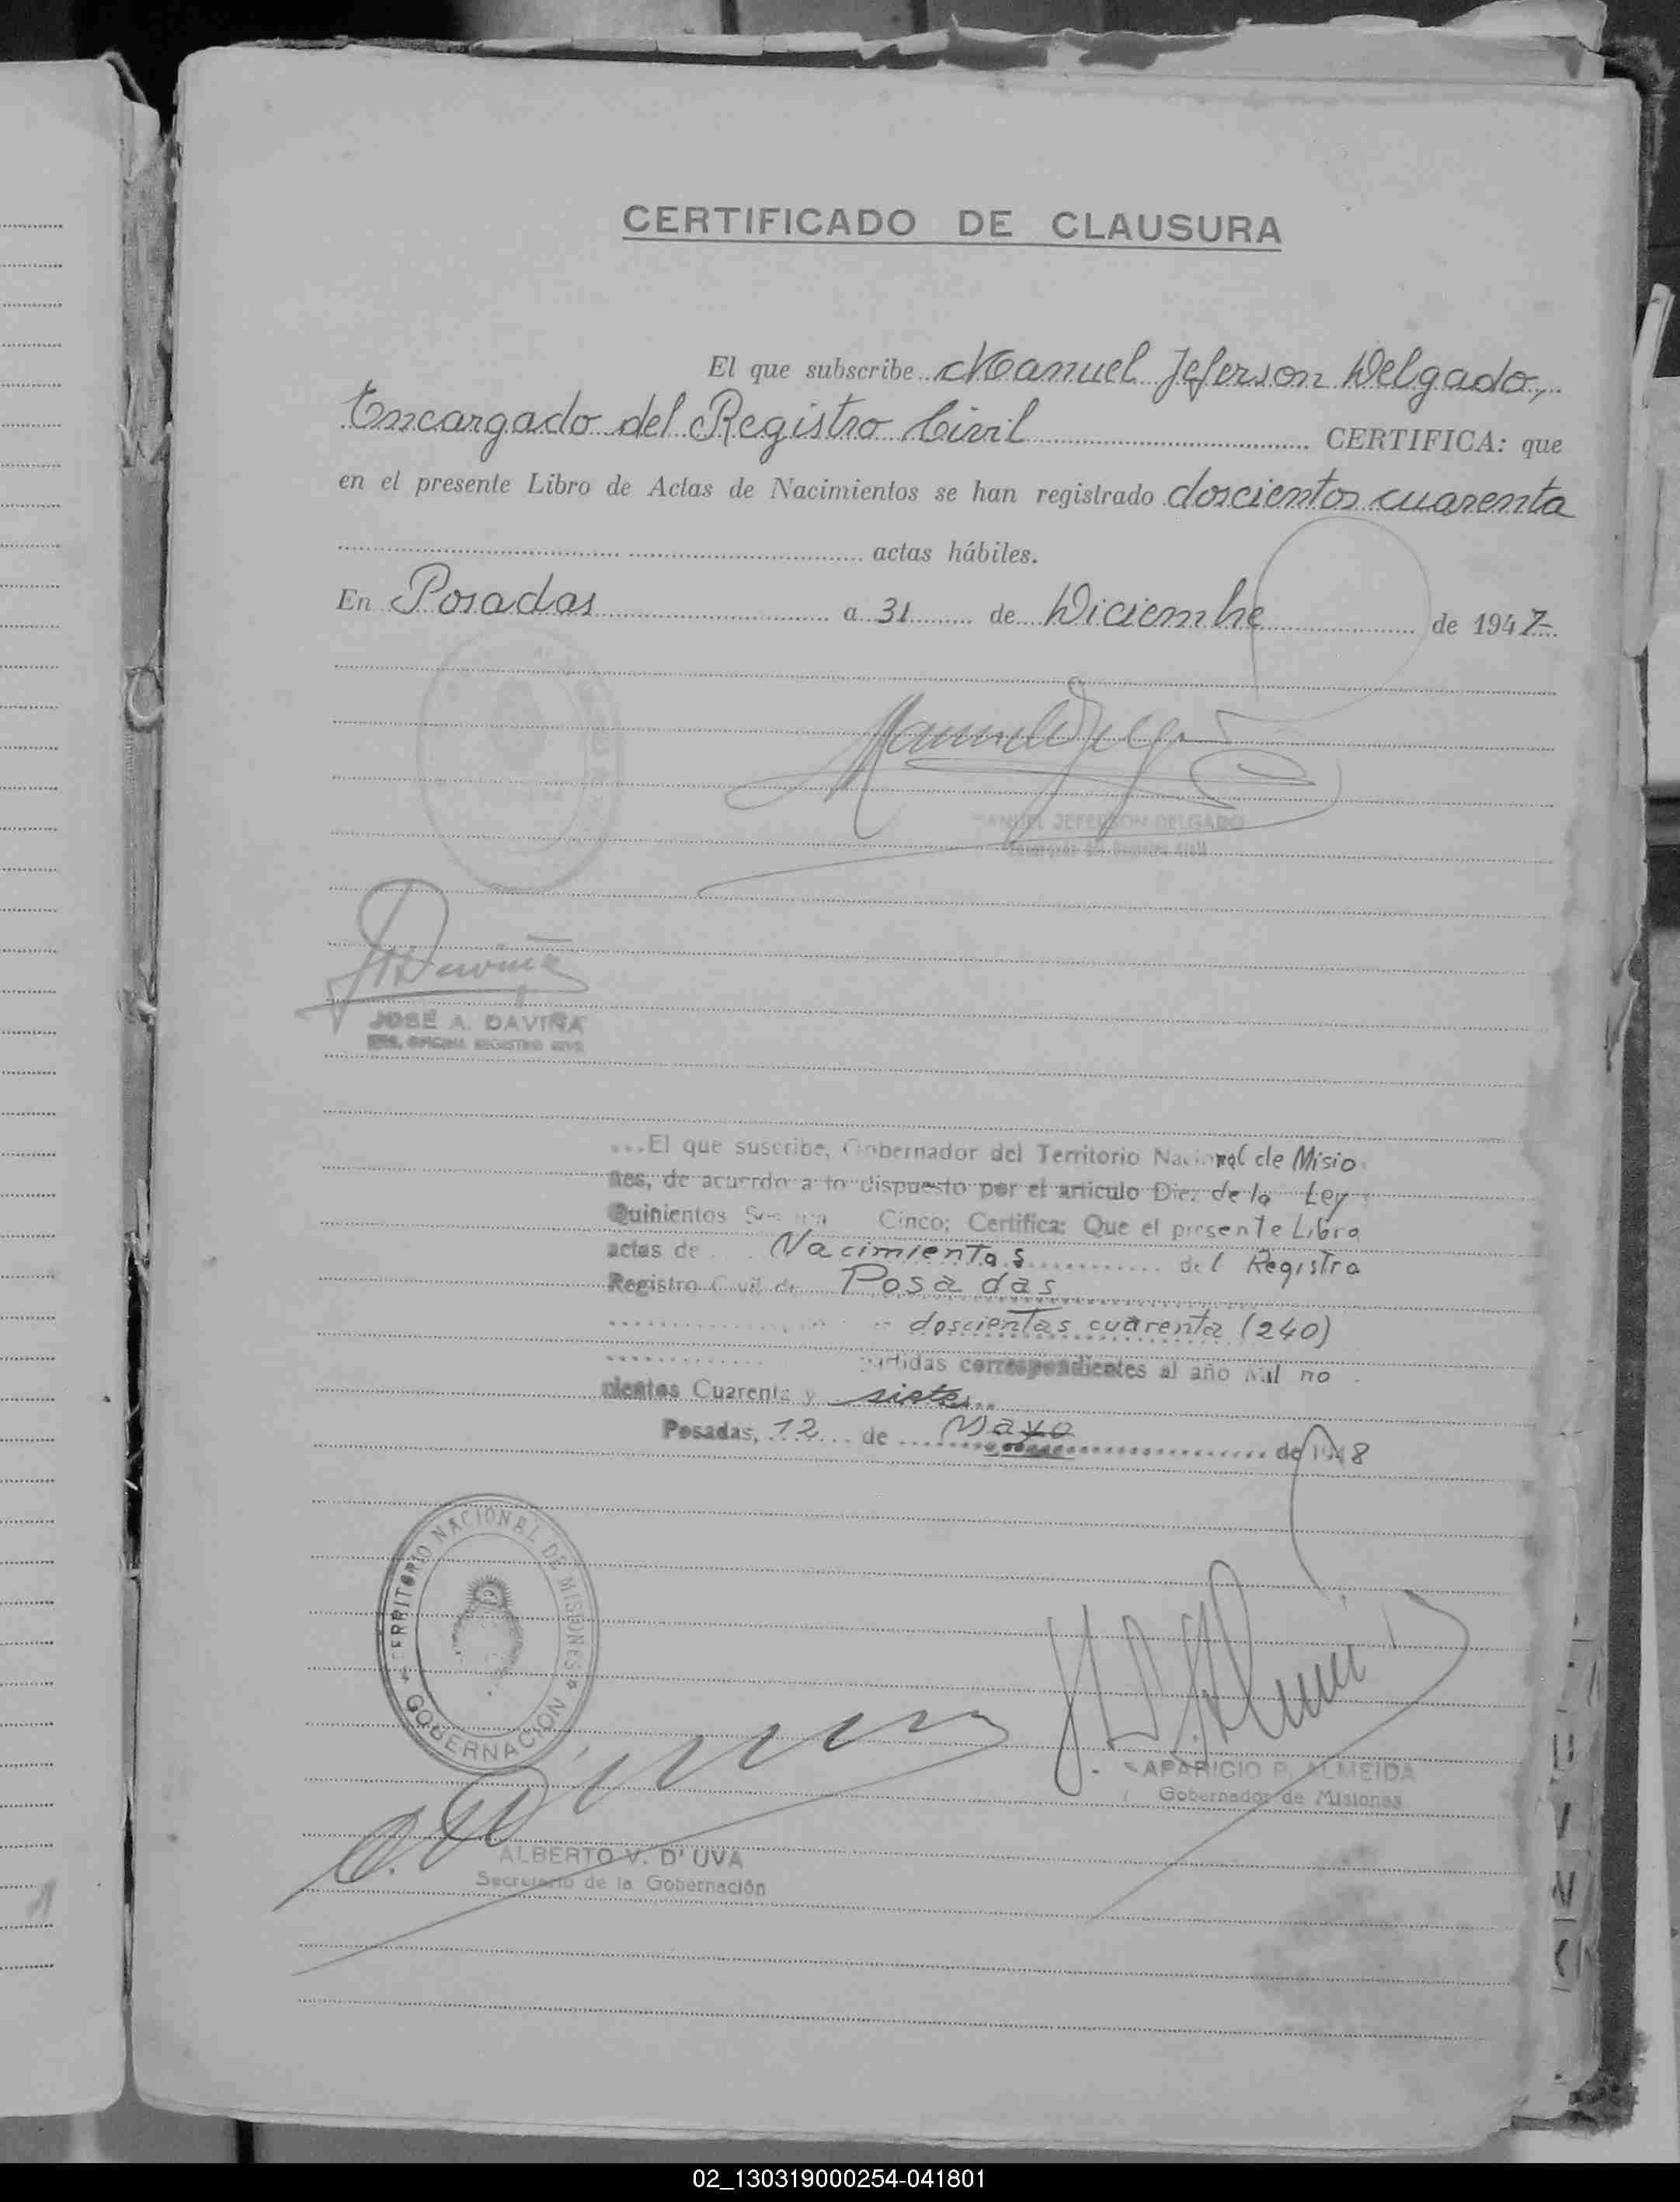 CERTIFICADO DE CLAUSURA
El que subscribe Manuel Jeferson Delgado,
Encargado del Registro Civil CERTIFICA: que
en el presente Libro de Actas de Nacimientos se han registrado doscientos cuarenta
actas hábiles.
En Posadas a 31 de Diciembre de 1947
MANUEL JEFERSON DELGADO
Encargado del Registro Civil
JOSÉ A. DAVIÑA
OFICINA REGISTRO CIVIL
...El que suscribe, Gobernador del Territorio Nacional de Misio
nes, de acuerdo a lo dispuesto por el artículo Diez de la Ley
Quinientos Cinco; Certifica: Que el presente Libro
actas de Nacimientos del Registro
Registro Civil de Posadas
doscientas cuarenta (240)
partidas correspondientes al año Mil no
cientos Cuarenta y siete
Posadas, 12 de Mayo de 1948
TERRITORIO NACIONAL DE MISIONES
GOBERNACION
APARICIO P. ALMEIDA
Gobernador de Misiones
ALBERTO V. D'UVA
Secretario de la Gobernación
02_130319000254-041801